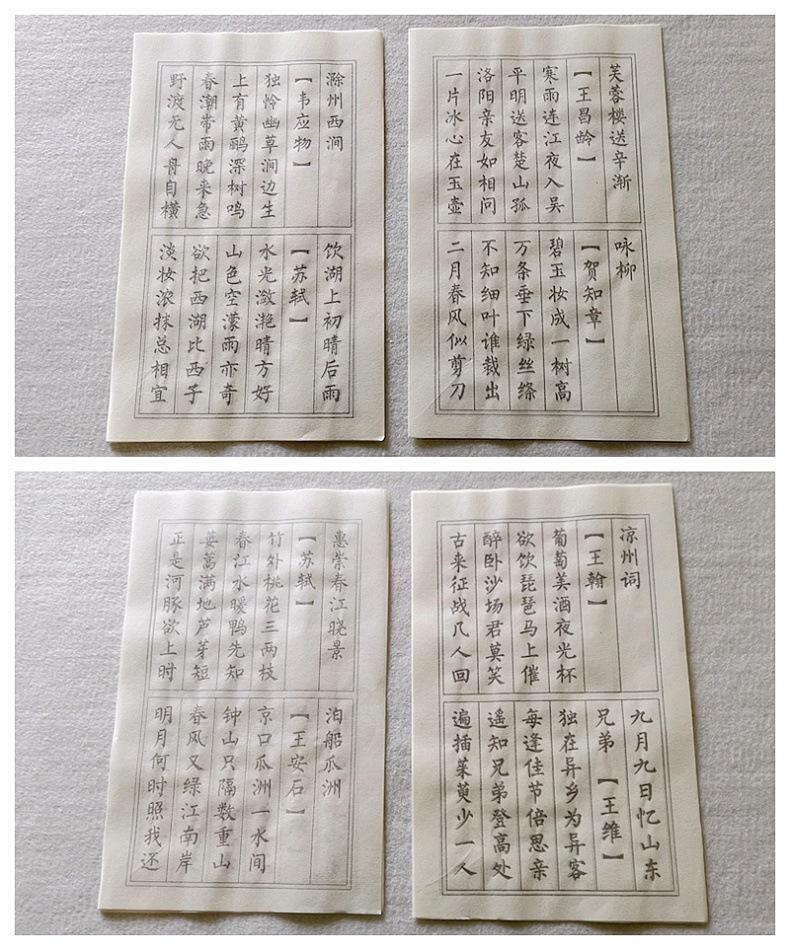 芙蓉楼送辛渐
【王昌龄】
寒雨连江夜入吴
平明送客楚山孤
洛阳亲友如相问
一片冰心在玉壶
咏柳
【贺知章】
碧玉妆成一树高
万条垂下绿丝绦
不知细叶谁裁出
二月春风似剪刀
滁州西涧
【韦应物】
独怜幽草涧边生
上有黄鹂深树鸣
春潮带雨晚来急
野渡无人舟自横
饮湖上初晴后雨
【苏轼】
水光潋滟晴方好
山色空濛雨亦奇
欲把西湖比西子
淡妆浓抹总相宜
凉州词
【王翰】
葡萄美酒夜光杯
欲饮琵琶马上催
醉卧沙场君莫笑
古来征战几人回
九月九日忆山东
兄弟 【王维】
独在异乡为异客
每逢佳节倍思亲
遥知兄弟登高处
遍插茱萸少一人
惠崇春江晓景
【苏轼】
竹外桃花三两枝
春江水暖鸭先知
蒌蒿满地芦芽短
正是河豚欲上时
泊船瓜洲
【王安石】
京口瓜洲一水间
钟山只隔数重山
春风又绿江南岸
明月何时照我还